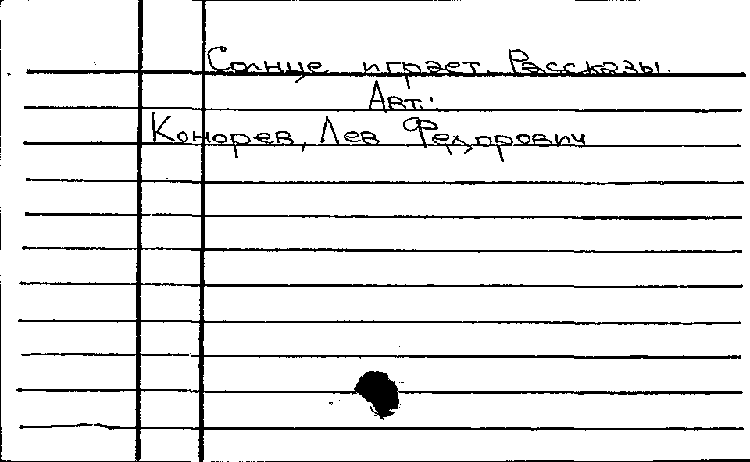 Солнце играет. Рассказы.
Авт.:
Конорев, Лев Федорович